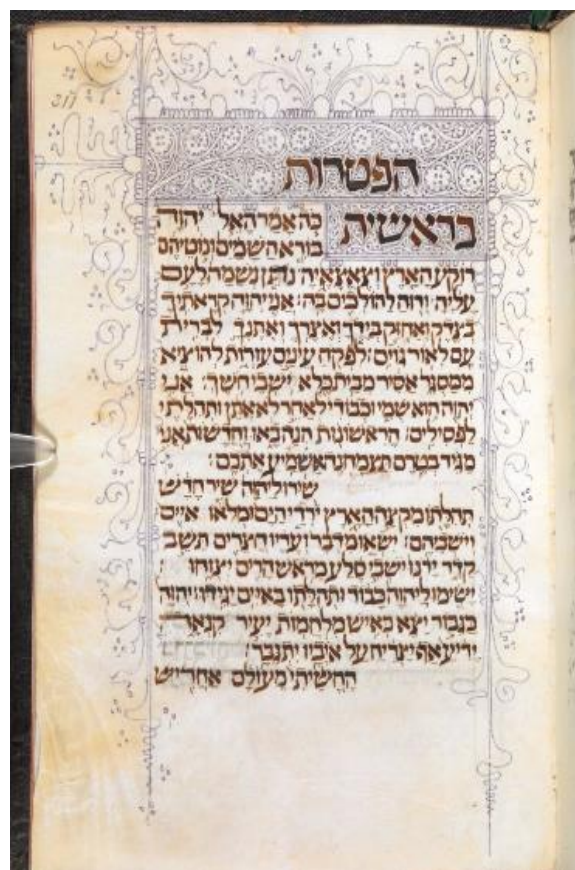 הפטרות
בראשית
כה אמר האל יהוה
בורא השמים ונוטיהם
רוקע הארץ וצאצאיה נתן נשמה לעם
עליה ורוח להולכים בה׃ אני יהוה קראתיך
בצדק ואחזק בידך ואצרך ואתנך לברית
עם לאור גוים׃ לפקח עינים עורות להוציא
ממסגר אסיר מבית כלא ישבי חשך׃ אני
יהוה הוא שמי וכבודי לאחר לא אתן ותהלתי
לפסילים׃ הראשונות הנה באו וחדשות אני
מגיד בטרם תצמחנה אשמיע אתכם׃
שירו ליהוה שיר חדש
תהלתו מקצה הארץ יורדי הים ומלאו איים
וישביהם׃ ישאו מדבר ועריו חצרים תשב
קדר ירנו ישבי סלע מראש הרים יצוחו׃
ישימו ליהוה כבוד ותהלתו באיים יגידו׃ יהוה
כגבור יצא כאיש מלחמות יעיר קנאה
יריע אף יצריח על איביו יתגבר׃
החשיתי מעולם אחריש